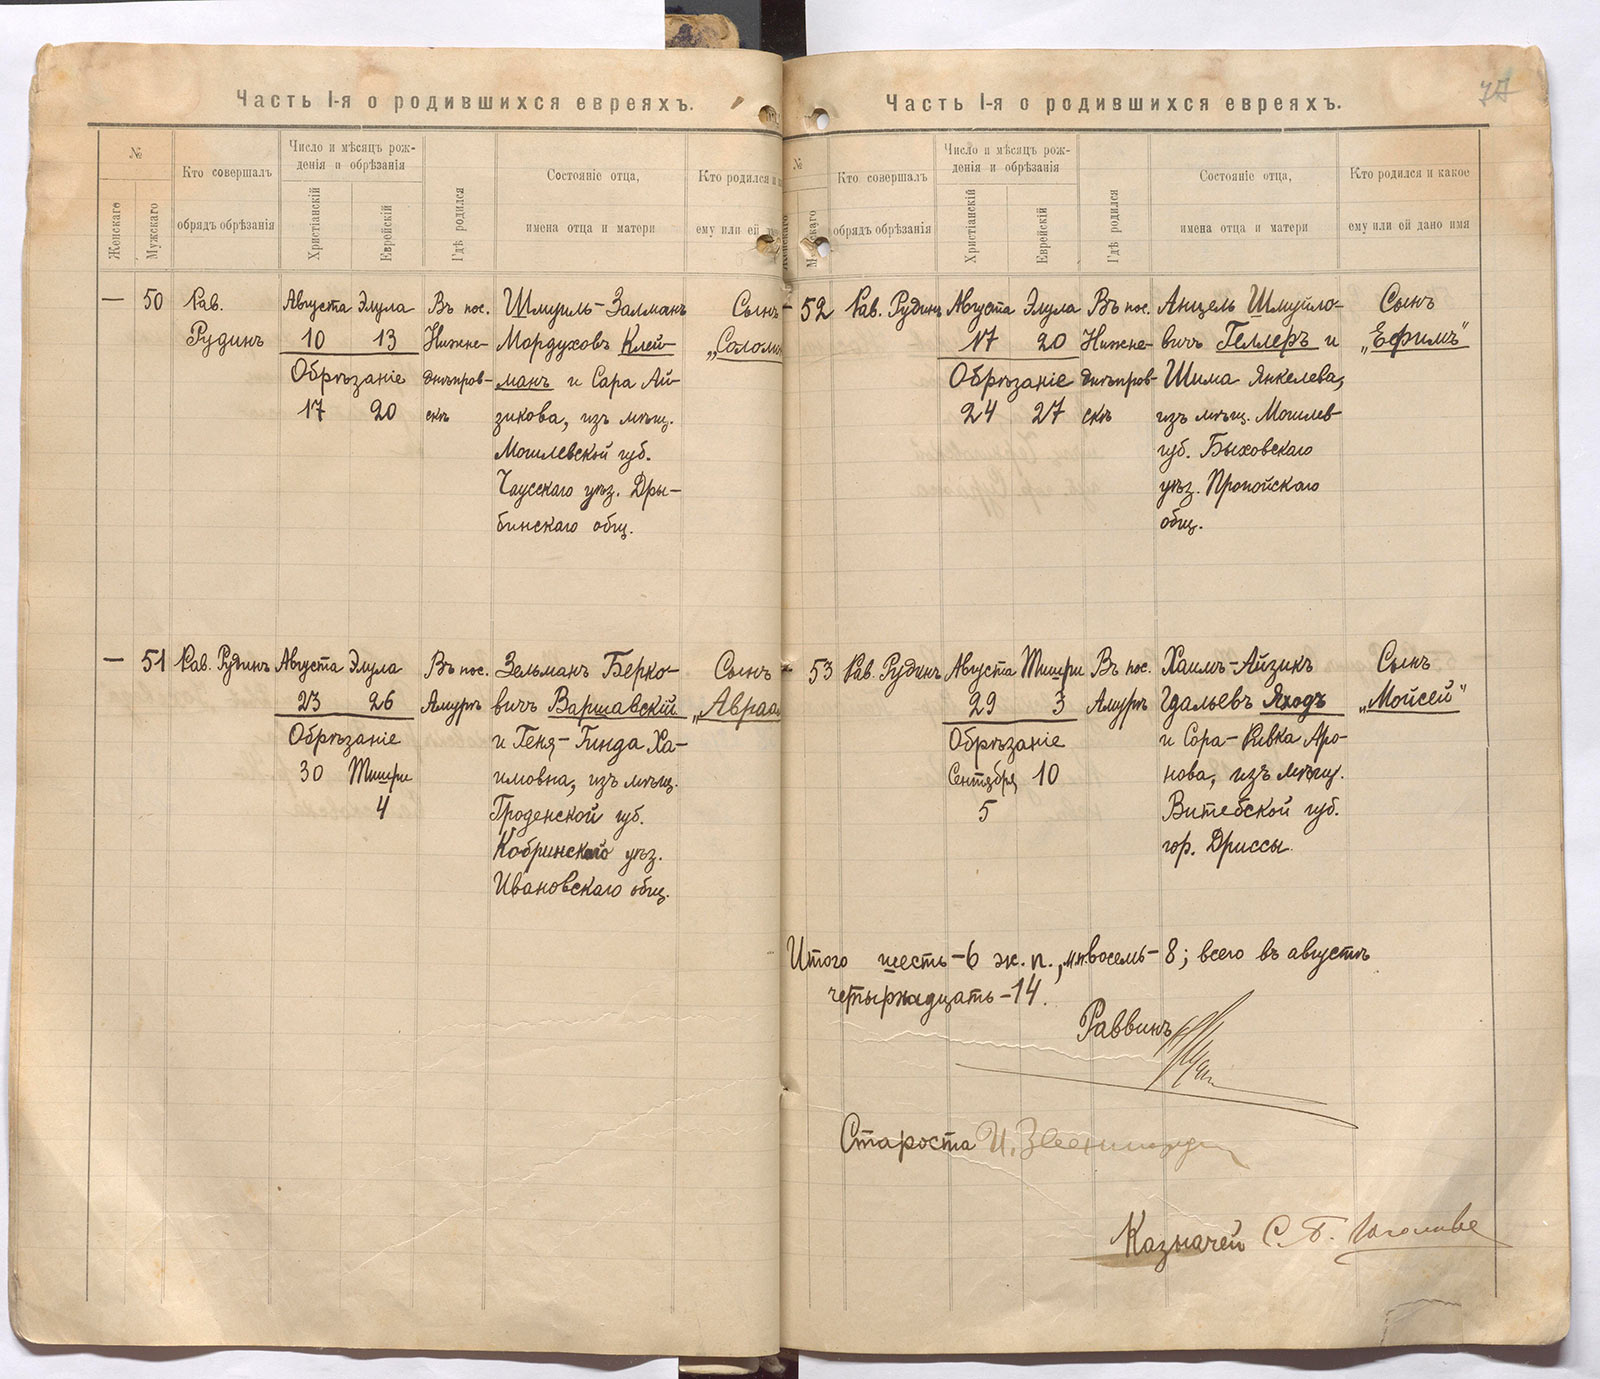 Часть I-я о родившихся евреяхъ.
№
Женскаго
Мужскаго
Кто совершалъ
обрядъ обрѣзанія
Число и мѣсяцъ рож-
денія и обрѣзанія
Христіанскій
Еврейскій
Гдѣ родился
Состояніе отца,
имена отца и матери
Кто родился и
ему или ей
— 50 Рав. Августа Элула Въ пос. Шмуиль-Залманъ Сынъ
Рудинъ 10 13 Нижне- Мордуховъ Клей- „Соломо
Обрѣзаніе днѣпров- манъ и Сара Ай-
17 20 скѣ зикова, изъ мѣщ.
Могилевской губ.
Чаусскаго уѣз. Дры-
бинскаго общ.
— 51 Рав. Рудинъ Августа Элула Въ пос. Зельманъ Берко- Сынъ
23 26 Амурѣ вичъ Варшавскій „Авраа
Обрѣзаніе и Геня-Гинда Ха-
30 Тишри имовна, изъ мѣщ.
4 Гроденской губ.
Кобринскаго уѣз.
Ивановскаго общ.
Часть I-я о родившихся евреяхъ.
77
№
Женскаго
Мужскаго
Кто совершалъ
обрядъ обрѣзанія
Число и мѣсяцъ рож-
денія и обрѣзанія
Христіанскій
Еврейскій
Гдѣ родился
Состояніе отца,
имена отца и матери
Кто родился и какое
ему или ей дано имя
— 52 Рав. Рудинъ Августа Элула Въ пос. Анцель Шмуйло- Сынъ
17 20 Нижне- вичъ Геллеръ и „Ефимъ"
Обрѣзаніе днѣпров- Шима Янкелева,
24 27 скѣ изъ мѣщ. Могилев
губ. Быховскаго
уѣз. Пропойскаго
общ.
— 53 Рав. Рудинъ Августа Тишри Въ пос. Хаимъ-Айзикъ Сынъ
29 3 Амурѣ Гдальевъ Яходъ „Мойсей"
Обрѣзаніе и Сора-Ривка Аро-
Сентября 10 нова, изъ мѣщ.
5 Витебской губ.
гор. Дриссы
Итого шесть-6 ж. п., м.п. восемь-8; всего въ августѣ
четырнадцать-14.
Раввинъ
Староста И.
Казначей С. Б.